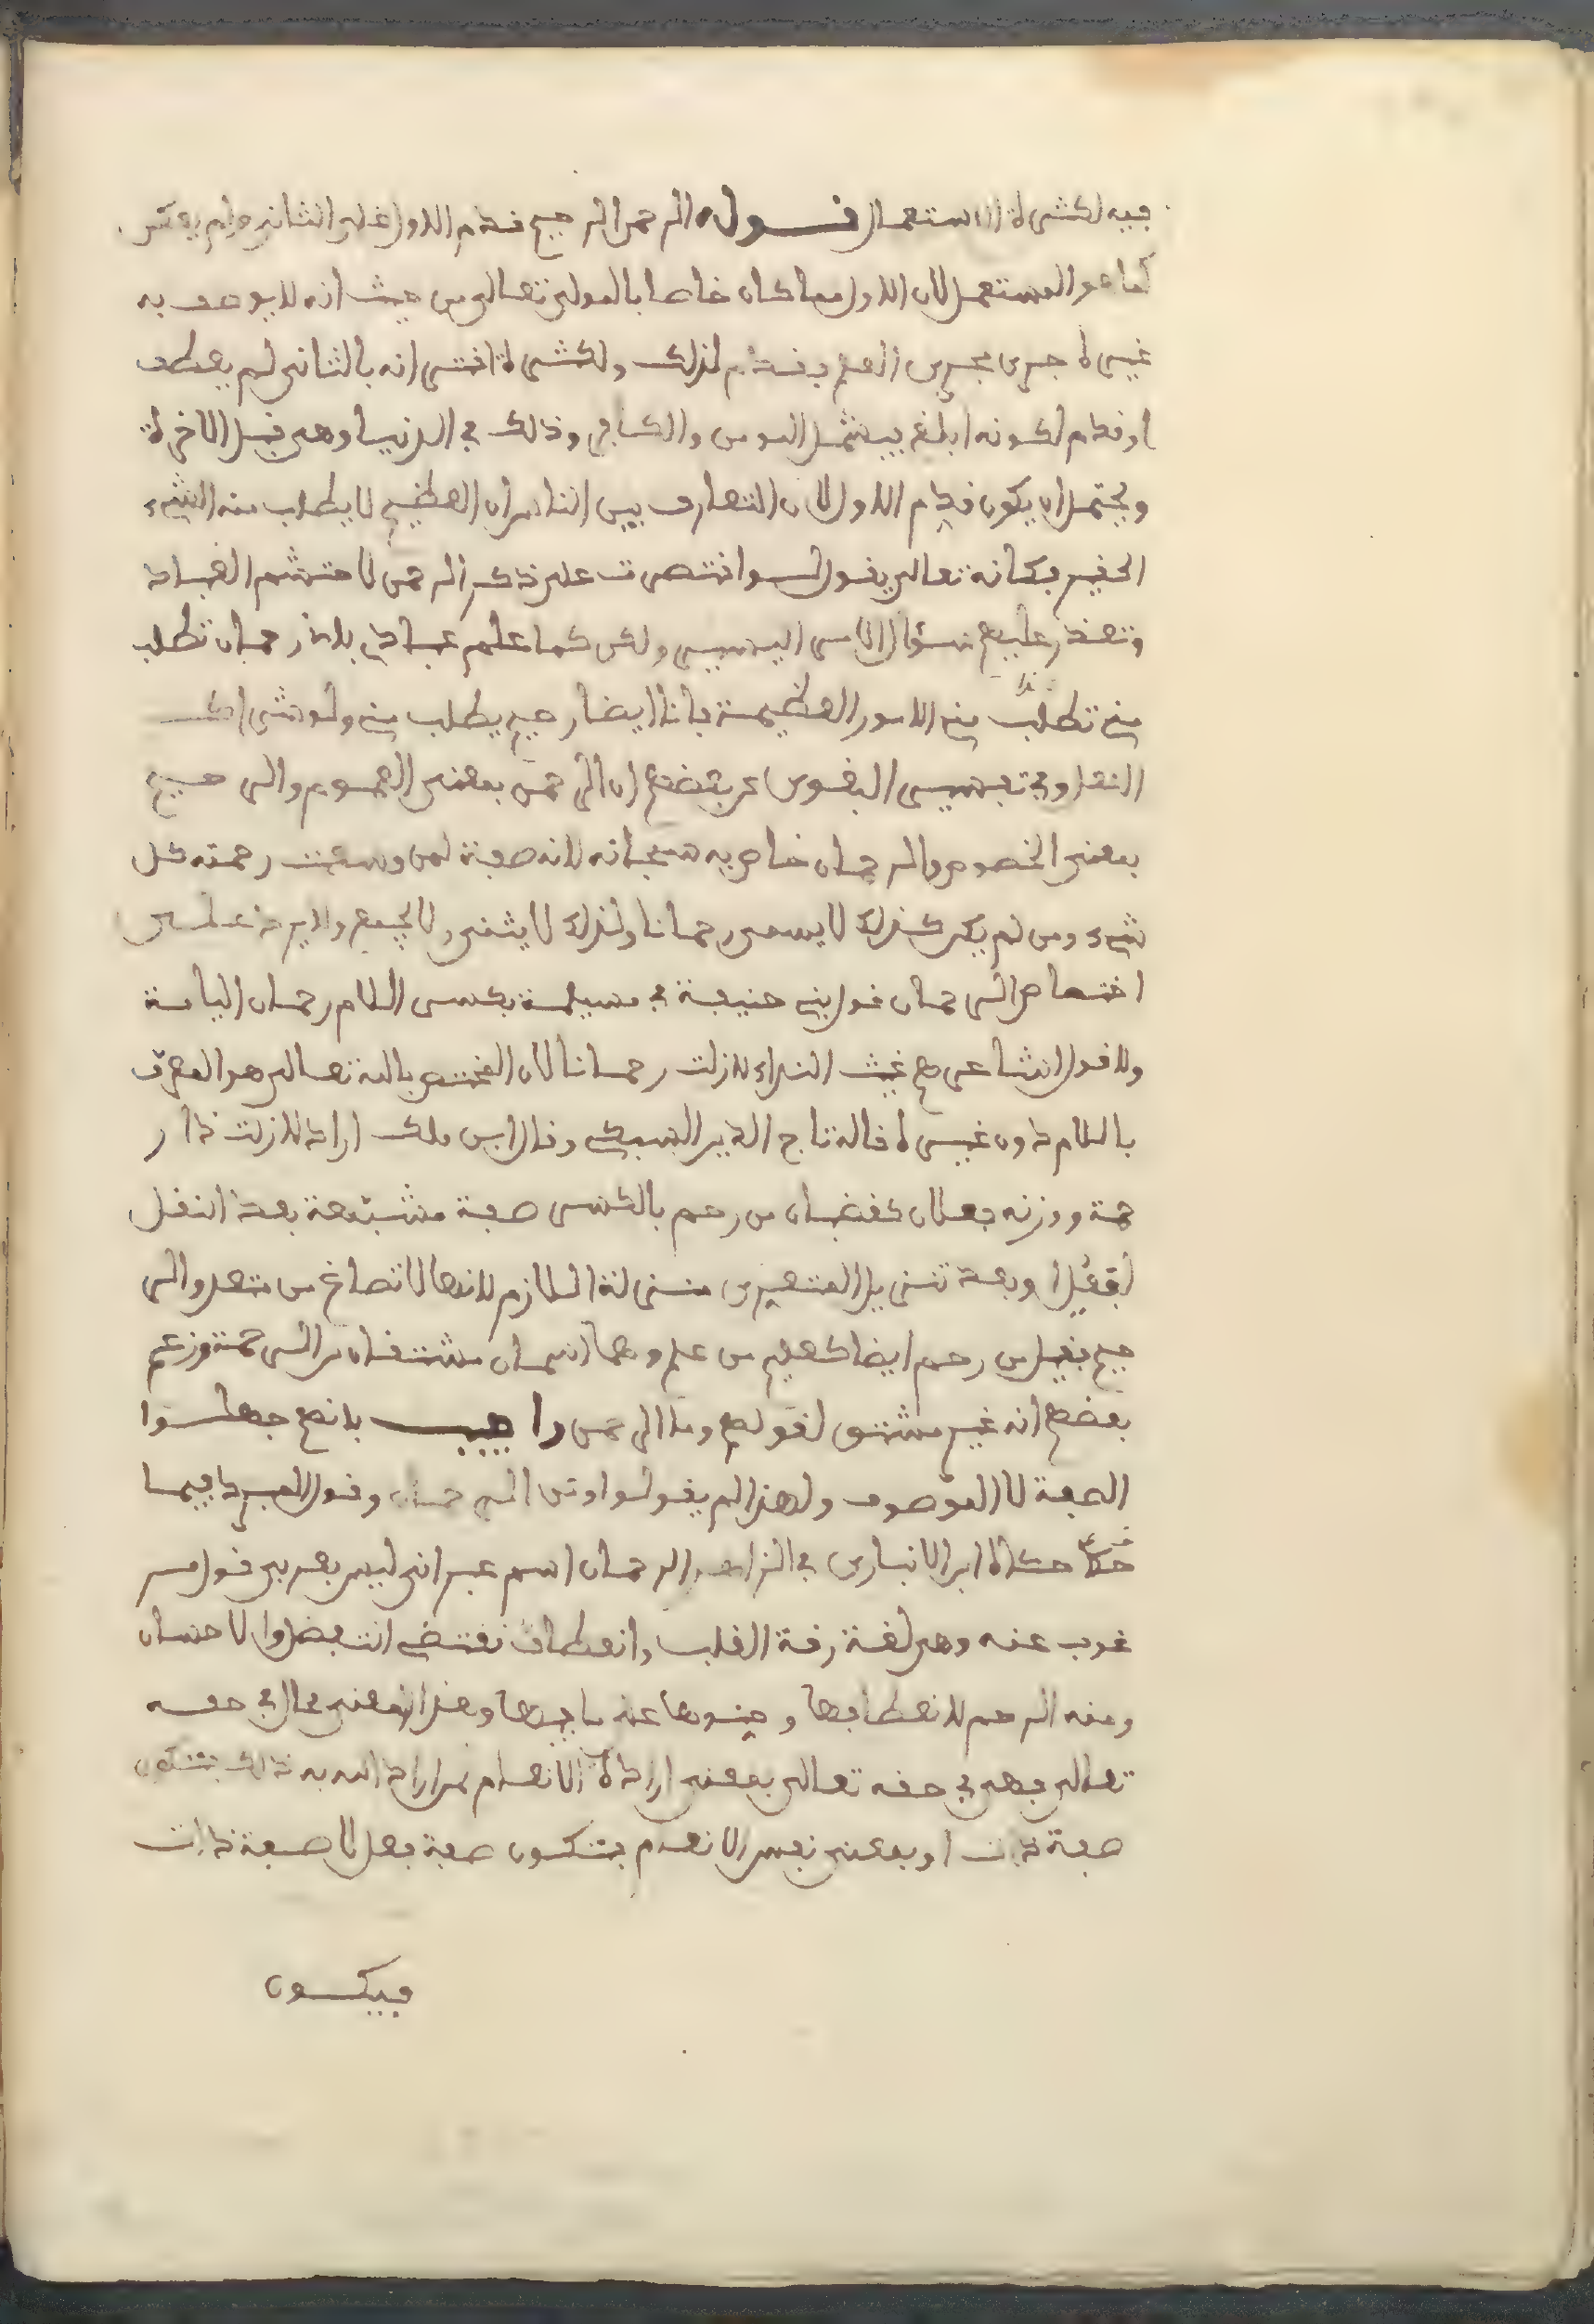 فيه لكثرة الاستعمال قوله الرحمن الرحيم قدم الاول على الثاني ولم يعكس
كما هو المستعمل لان الاول لما كان خاصا بالمولى تعالى من حيث انه لا يوصف به
غيره جرى مجرى العلم فقدم لذلك ولكثرة اقترانه بالثاني لم يعطف
او قدم لكونه ابلغ فيشمل المومن والكافر وذلك في الدنيا وهي قبل الاخرة
ويحتمل ان يكون قدم الاول لان التعارف بين الناس ان العظيم لا يطلب منه الشيء
الحقير فكانه تعالى يقول لو اقتصرت على ذكر الرحمن لاحتشم العباد
وتعذر عليهم سؤال الامر اليسير ولكن كما علم عبادي باني رحمان تطلب
مني تطلب مني الامور العظيمة فانا ايضا رحيم يطلب مني ولو شراك
النعل وفي تفسير البغوي عن بعضهم ان الرحمن بمعنى العموم والرحيم
بمعنى الخصوص والرحمان خاص به سبحانه لانه صفة لمن وسعت رحمته كل
شيء ومن لم يكن كذلك لا يسمى رحمانا ولذلك لا يثنى ولا يجمع ولا يرد على
اختصاص الرحمان قول بني حنيفة في مسيلمة بكسر اللام رحمان اليمامة
ولا قول الشاعر هم غيث الندا لازلت رحمانا لان المختص بالله تعالى هو المعرف
باللام دون غيره قاله تاج الدين السبكي وقال ابن ملك اراد لازلت ذا ر
حمة ووزنه فعلان كغضبان من رحم بالكسر صفة مشبهة بعد النقل
لفعل او بعد تنزيل المتعدي منزلة اللازم لانها لا تصاغ من متعد والر
حيم فعيل من رحم ايضا كعليم من علم وهما اسمان مشتقان من الرحمة وزعم
بعضهم انه غير مشتق لقولهم وما الرحمن واجيب بانهم جهلوا
الصفة لا الموصوف ولهذا لم يقولوا ومن الرحمان وقول المبرد فيما
حكاه ابن الانباري في الزاهر الرحمان اسم عبراني ليس بعربي قول مر
غوب عنه وهي لغة رقة القلب وانعطاف تقتضي التفضل والاحسان
ومنه الرحم لانعطافها وحنوها على ما فيها وهذا المعنى محال في حقه
تعالى فهي في حقه تعالى بمعنى ارادة الانعام لمن اراد الله به ذلك فتكون
صفة ذات او بمعنى نفس الانعام فتكون صفة فعل لا صفة ذات
فيكون